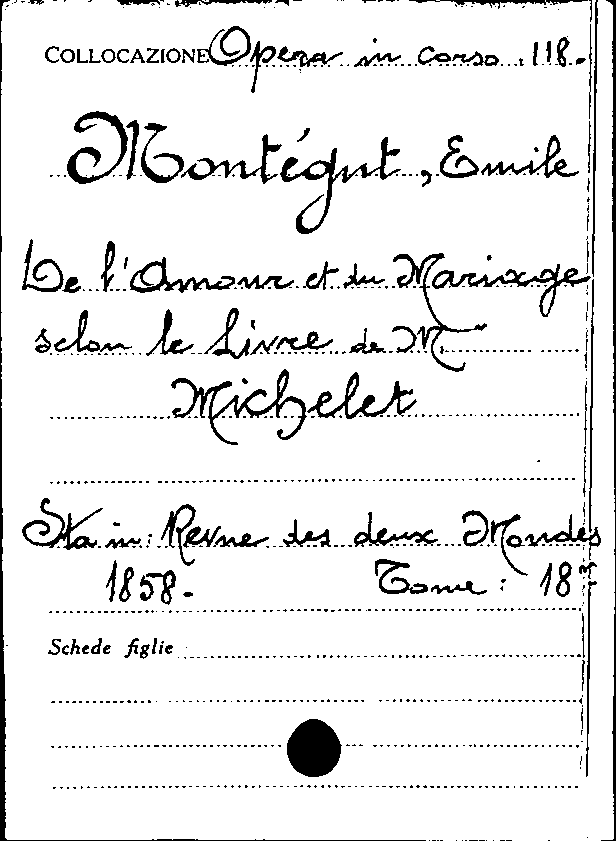 COLLOCAZIONE Opera in corso. 118.
Montégut, Emile
De l'Amour et du Mariage
selon le Livre de M.
Michelet
Sta in: Revue des deux Mondes
1858. Tome: 18
Schede figlie